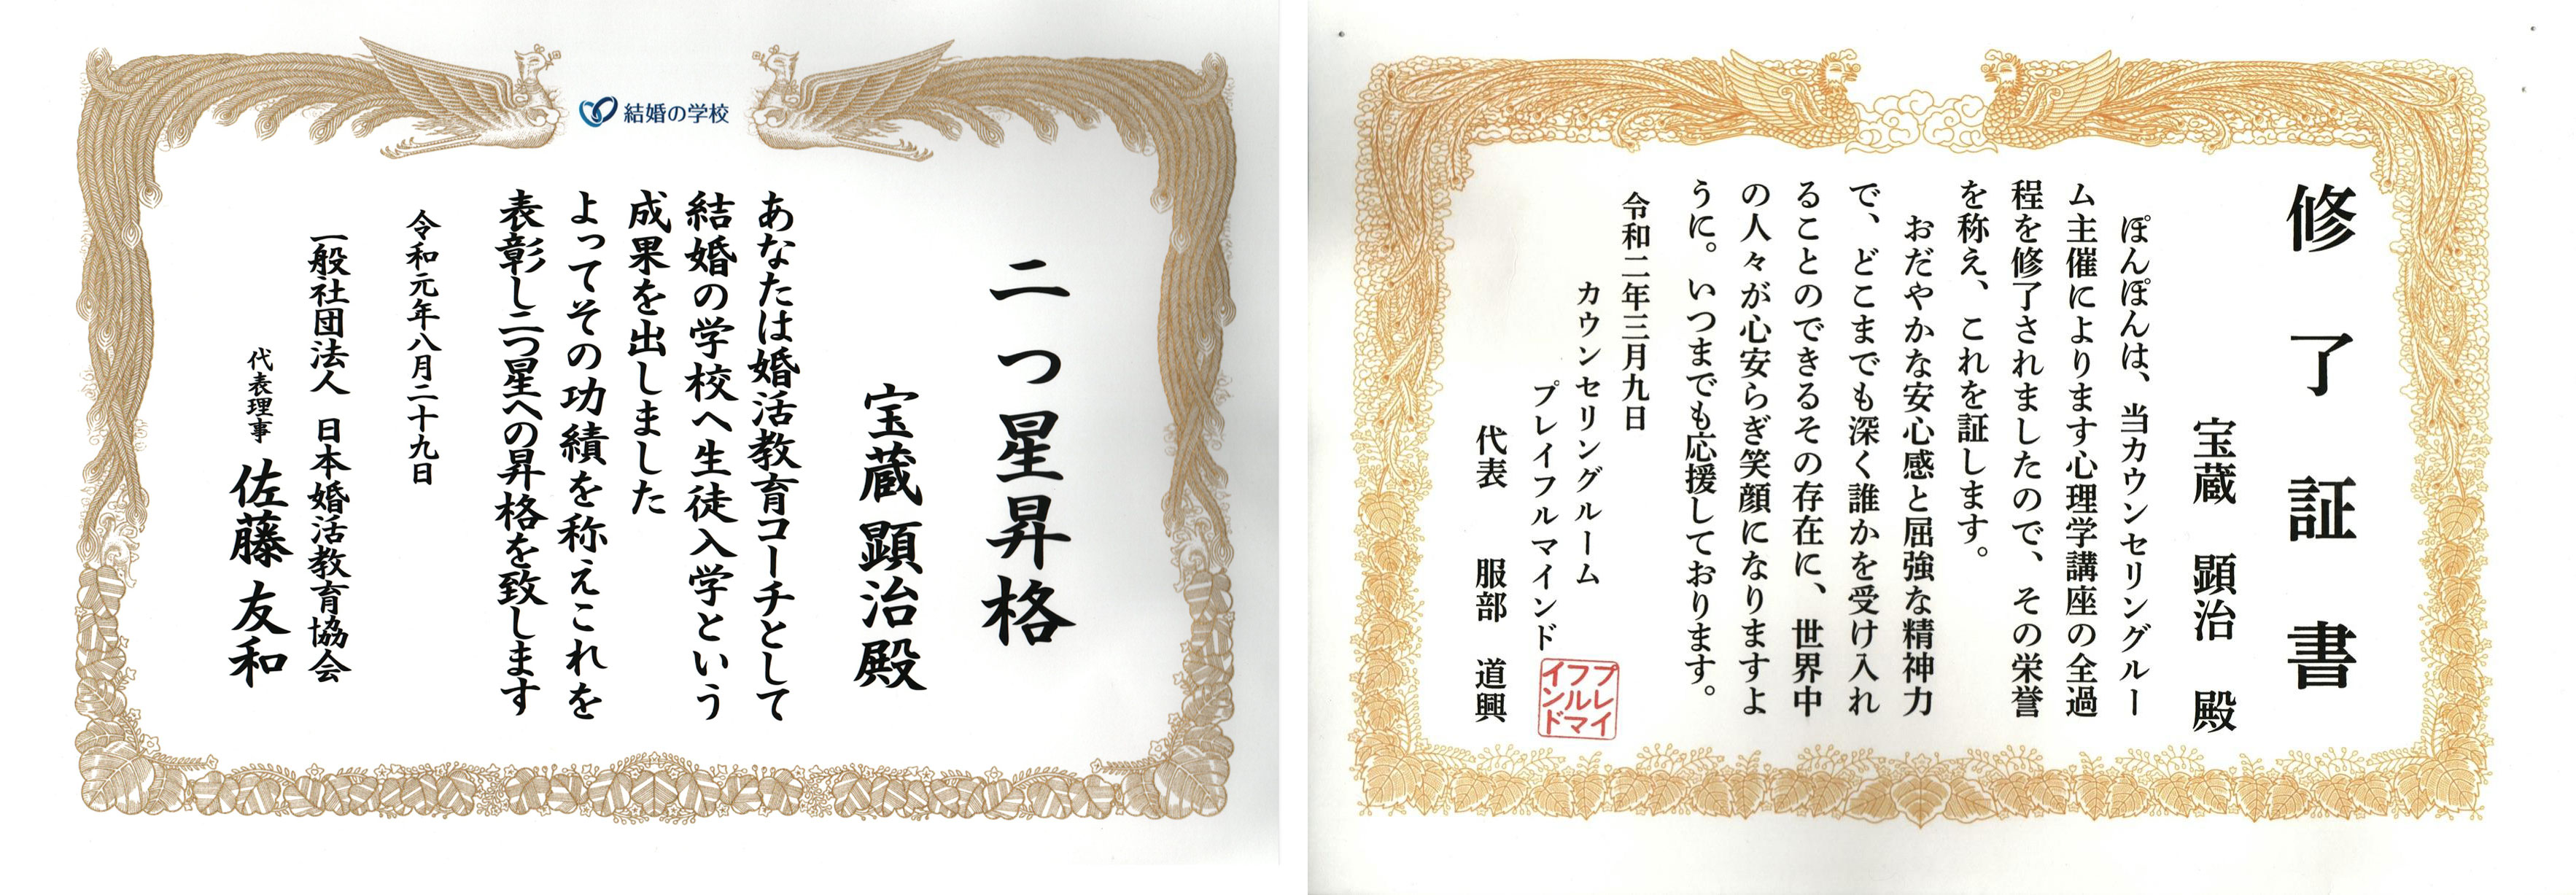 結婚の学校
二つ星昇格
宝蔵 顕治 殿
あなたは婚活教育コーチとして
結婚の学校へ生徒入学という
成果を出しました
よってその功績を称えこれを
表彰し二つ星への昇格を致します
令和元年八月二十九日
一般社団法人 日本婚活教育協会
代表理事 佐藤 友和
修了証書
宝蔵 顕治 殿
ぽんぽんは、当カウンセリングルー
ム主催によります心理学講座の全過
程を修了されましたので、その栄誉
を称え、これを証します。
おだやかな安心感と屈強な精神力
で、どこまでも深く誰かを受け入れ
ることのできるその存在に、世界中
の人々が心安らぎ笑顔になりますよ
うに。いつまでも応援しております。
令和二年三月九日
カウンセリングルーム
プレイフルマインド
代表 服部 道興
プレイ
フルマ
インド